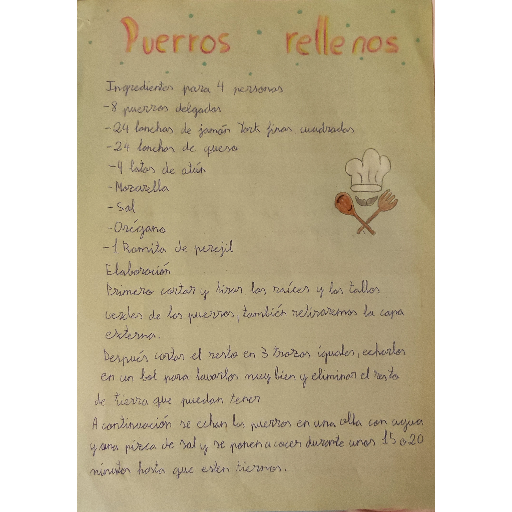 Puerros rellenos
Ingredientes para 4 personas
-8 puerros delgados
-24 lonchas de jamón York finas cuadradas
-24 lonchas de queso
-4 latas de atún
-Mozarella
-Sal
-Orégano
-1 Ramita de perejil
Elaboración
Primero cortar y tirar las raíces y los tallos
verdes de los puerros, también retiraremos la capa
externa.
Después cortar el resto en 3 trozos iguales, echarlos
en un bol para lavarlos muy bien y eliminar el resto
de tierra que puedan tener
A continuación se echan los puerros en una olla con agua
y una pizca de sal y se ponen a cocer durante unos 15 o 20
minutos hasta que esten tiernos.